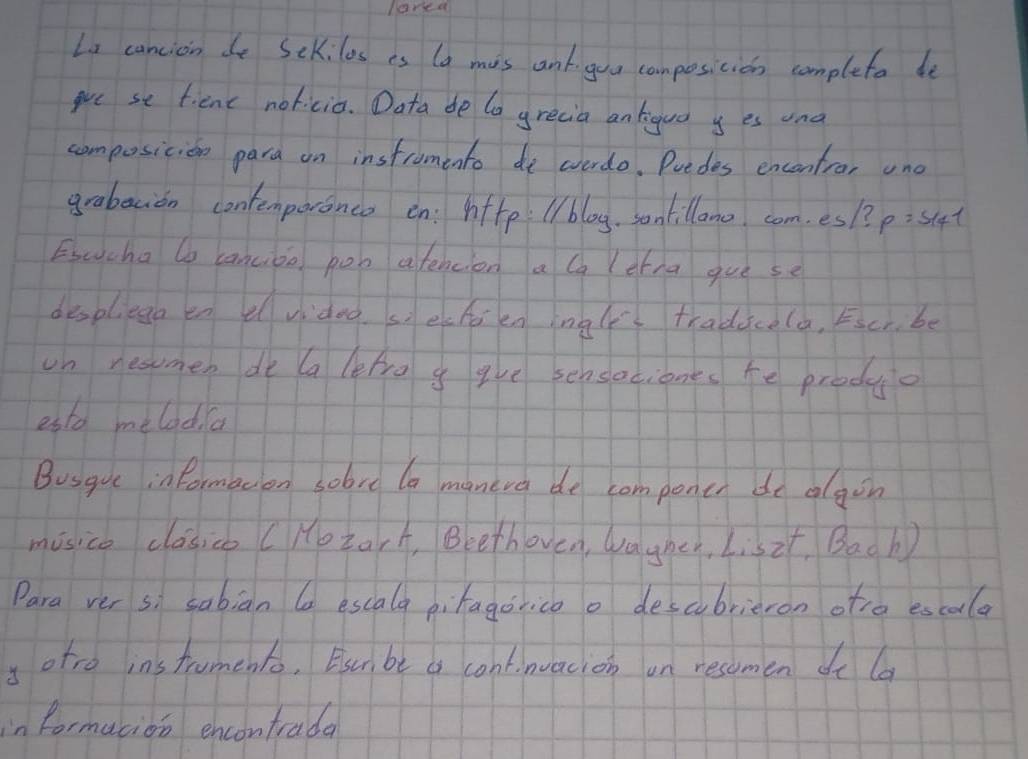 Tarea
La canción de Sekilos es la más antigua composición completa de
que se tiene noticia. Data de la grecia antigua y es una
composición para un instrumento de cuerda. Puedes encontrar una
grabación contemporánea en: http://blog.santillana.com.es/?p=5141
Escucha la canción, pon atencion a la letra que se
despliega en el video. si está en inglés tradúcela. Escribe
un resumen de la letra y que sensaciones te produjo
esta melodía
Busque informacion sobre la manera de componer de algún
músico clásico (Mozart, Beethoven, Wagner, Liszt, Bach)
Para ver si sabían la escala pitagórica o descubrieron otra escala
y otro instrumento. Escribe a continuación un resumen de la
información encontrada